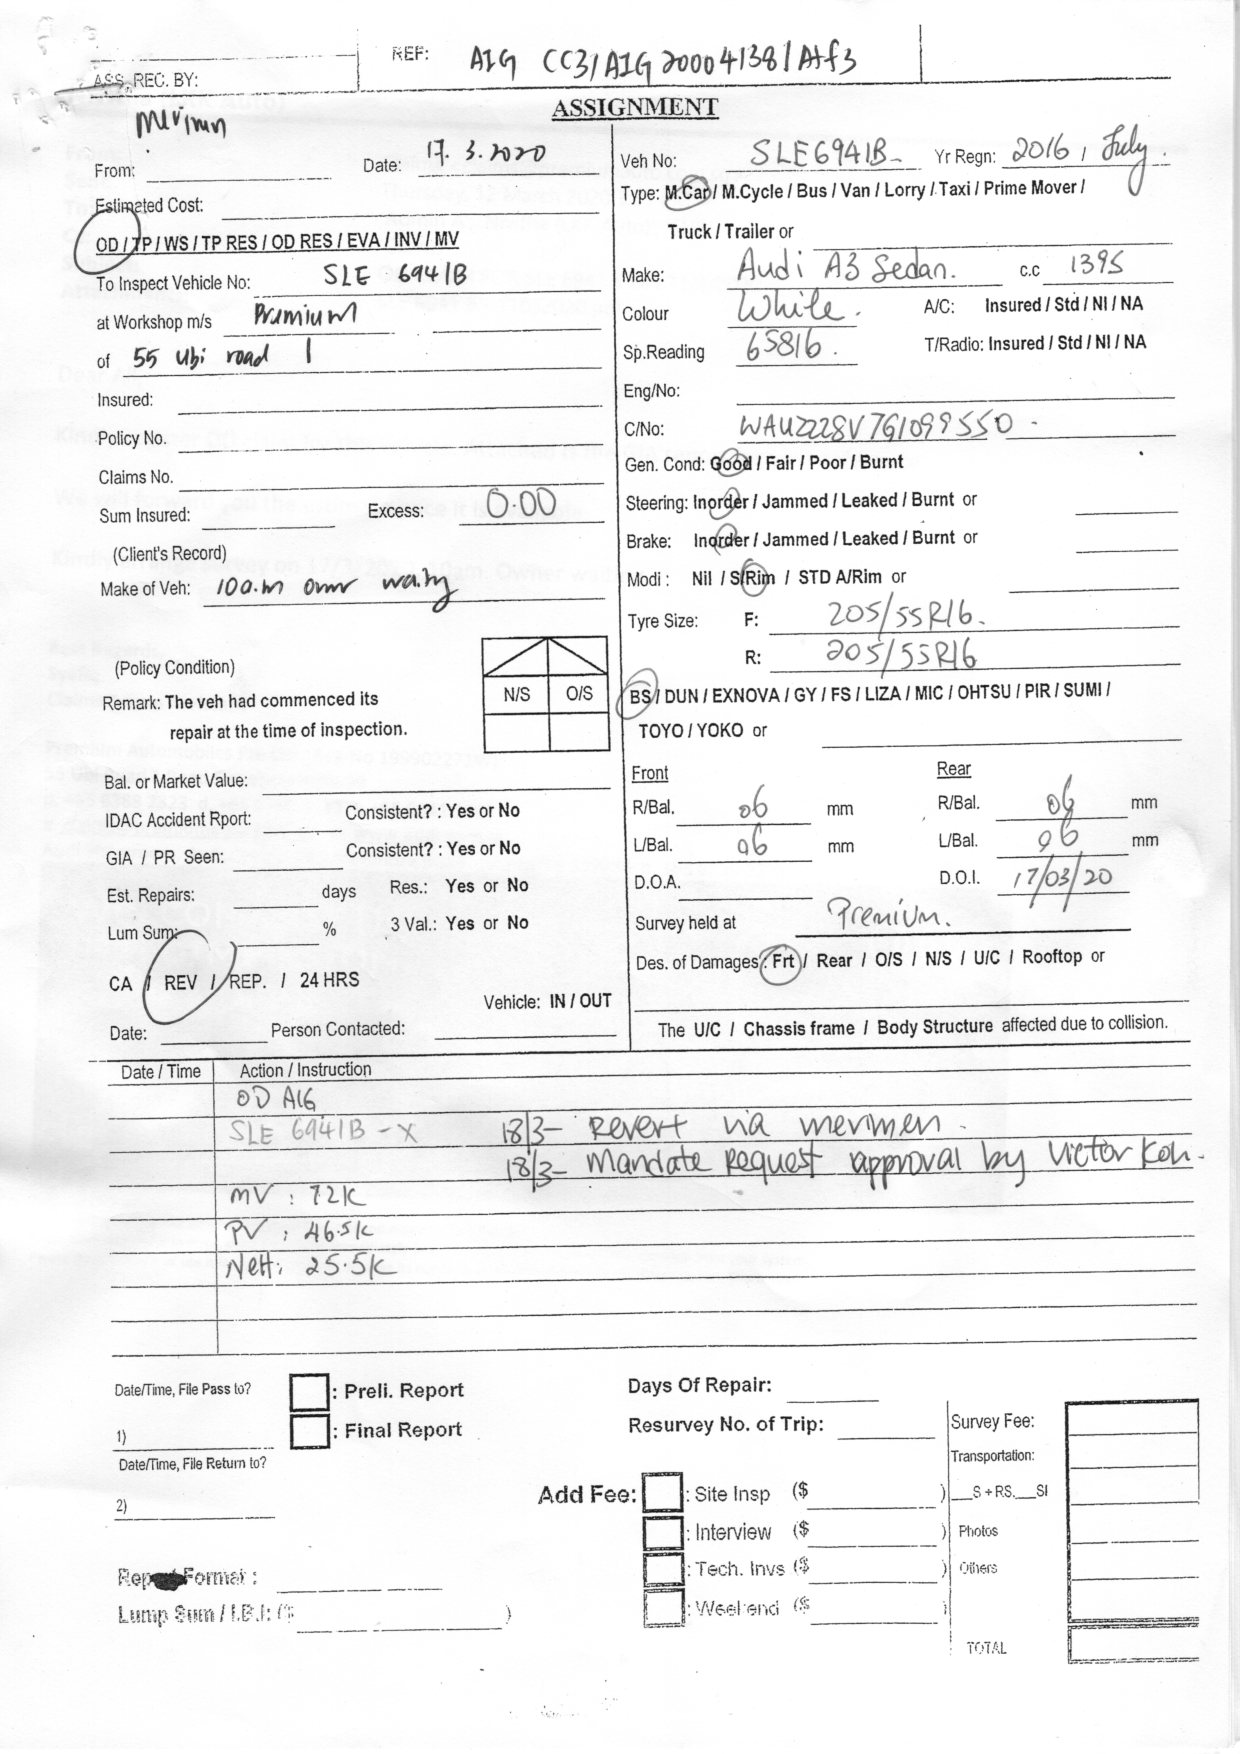 REF: AIG CC3/AIG20004138/Atf3
ASS. REC. BY:
ASSIGNMENT
merimen
From: Date: 17. 3. 2020
Estimated Cost:
OD / TP / WS / TP RES / OD RES / EVA / INV / MV
To Inspect Vehicle No: SLE 6941B
at Workshop m/s Premium
of 55 Ubi road 1
Insured:
Policy No.
Claims No.
Sum Insured: Excess: 0.00
(Client's Record)
Make of Veh: 10a.m owner waiting
(Policy Condition)
Remark: The veh had commenced its
repair at the time of inspection.
N/S O/S
Bal. or Market Value:
IDAC Accident Rport: Consistent? : Yes or No
GIA / PR Seen: Consistent? : Yes or No
Est. Repairs: days Res.: Yes or No
Lum Sum: % 3 Val.: Yes or No
CA / REV / REP. / 24 HRS
Vehicle: IN / OUT
Date: Person Contacted:
Veh No: SLE6941B Yr Regn: 2016, July.
Type: M.Car / M.Cycle / Bus / Van / Lorry / Taxi / Prime Mover /
Truck / Trailer or
Make: Audi A3 Sedan. c.c 1395
Colour White. A/C: Insured / Std / NI / NA
Sp.Reading 65816. T/Radio: Insured / Std / NI / NA
Eng/No:
C/No: WAUZZZ8V7G1099550
Gen. Cond: Good / Fair / Poor / Burnt
Steering: Inorder / Jammed / Leaked / Burnt or
Brake: Inorder / Jammed / Leaked / Burnt or
Modi : Nil / S/Rim / STD A/Rim or
Tyre Size: F: 205/55R16.
R: 205/55R16
BS / DUN / EXNOVA / GY / FS / LIZA / MIC / OHTSU / PIR / SUMI /
TOYO / YOKO or
Front Rear
R/Bal. 06 mm R/Bal. 06 mm
L/Bal. 06 mm L/Bal. 06 mm
D.O.A. D.O.I. 17/03/20
Survey held at Premium.
Des. of Damages : Frt / Rear / O/S / N/S / U/C / Rooftop or
The U/C / Chassis frame / Body Structure affected due to collision.
Date / Time Action / Instruction
OD AIG
SLE 6941B - X 18/3- Revert via merimen.
18/3- Mandate Request approval by Victor Koh.
MV : 72K
PV : 46.5K
Nett: 25.5K
Date/Time, File Pass to? : Preli. Report
1) : Final Report
Date/Time, File Return to?
2)
Days Of Repair:
Resurvey No. of Trip:
Add Fee: : Site Insp ($ )
: Interview ($ )
: Tech. Invs ($ )
: Weekend ($ )
Survey Fee:
Transportation:
__S + RS.__SI
Photos
Others
TOTAL
Report Format :
Lump Sum / I.B.I: ($ )